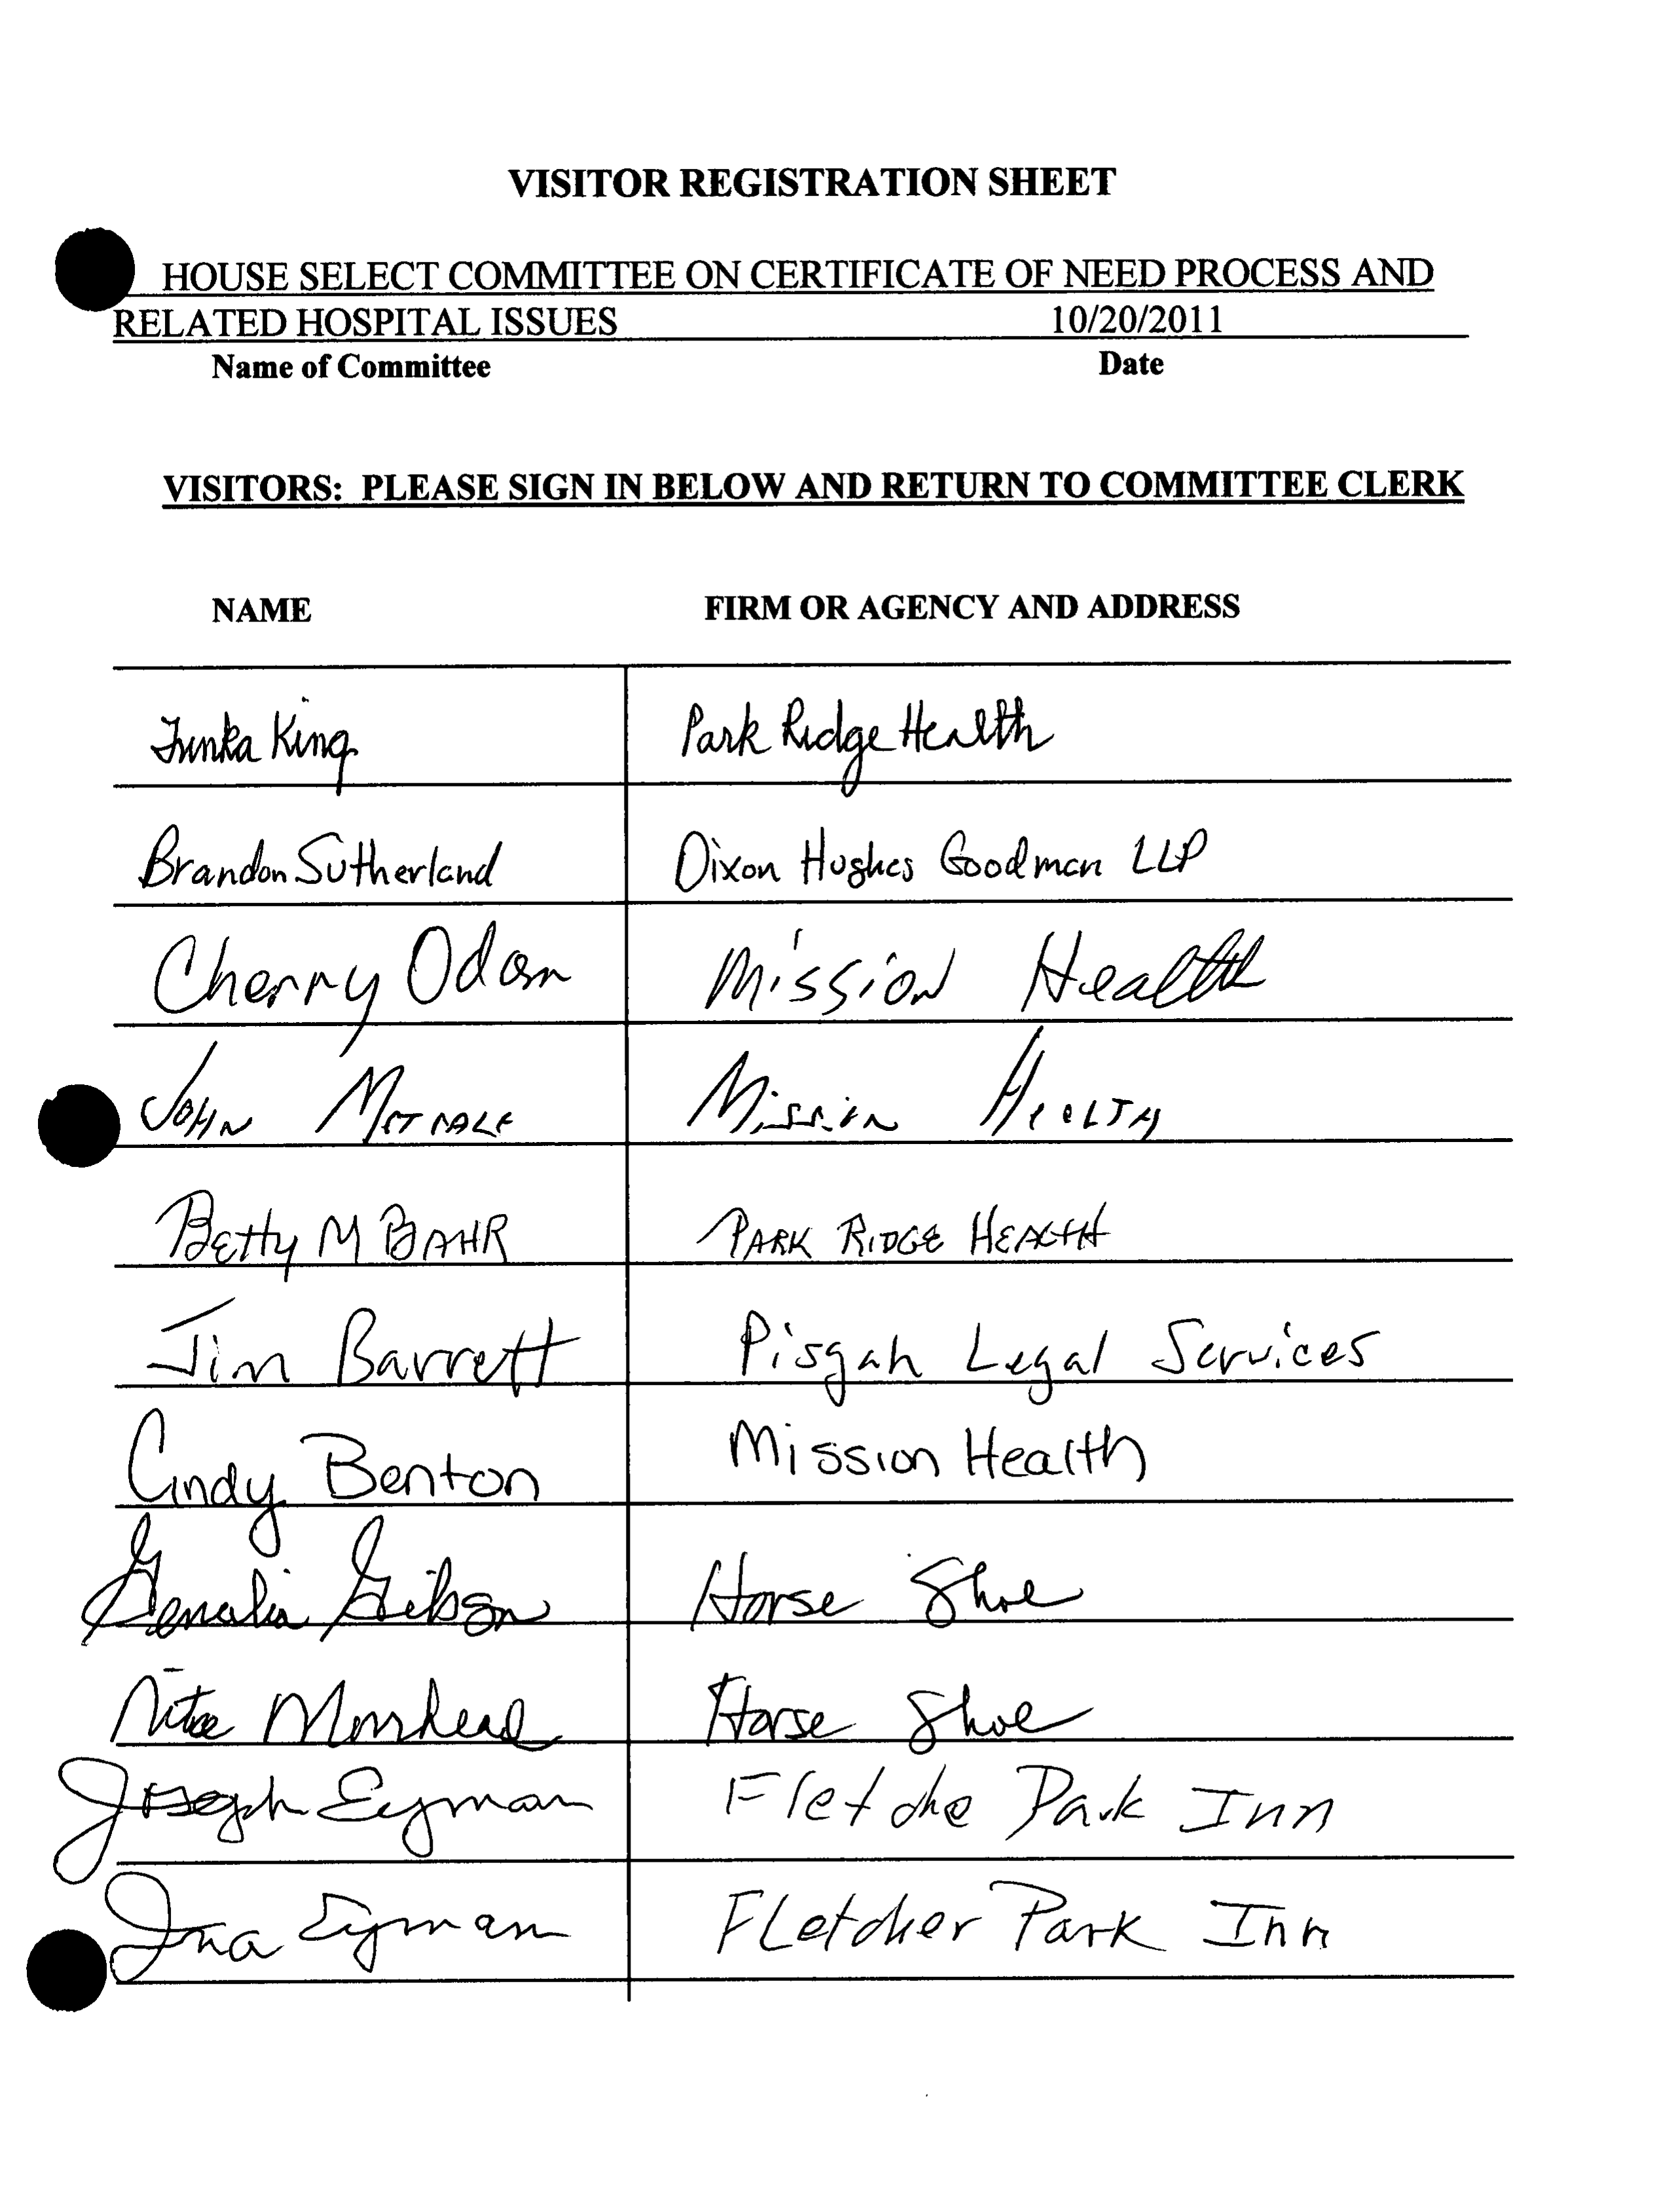 VISITOR REGISTRATION SHEET
HOUSE SELECT COMMITTEE ON CERTIFICATE OF NEED PROCESS AND
RELATED HOSPITAL ISSUES 10/20/2011
Name of Committee Date
VISITORS: PLEASE SIGN IN BELOW AND RETURN TO COMMITTEE CLERK
NAME FIRM OR AGENCY AND ADDRESS
King Park Ridge Health
Brandon Sutherland Dixon Hughes Goodman LLP
Cherry Odom Mission Health
John Mission Health
Betty M BAHR PARK RIDGE HEALTH
Jim Barrett Pisgah Legal Services
Cindy Benton Mission Health
Gibson Horse Shoe
Nita Horse Shoe
Joseph Eyman Fletche Park Inn
Ina Eyman FLetcher Park Inn